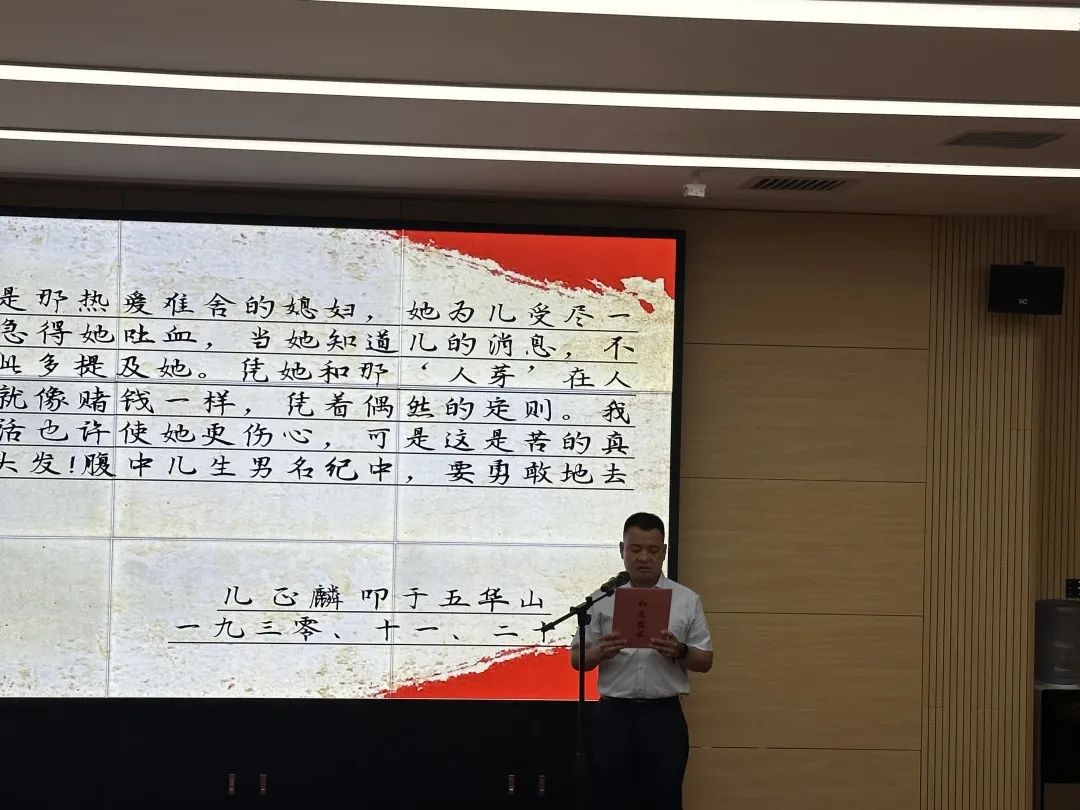 是那热爱难舍的媳妇，她为儿受尽一
急得她吐血，当她知道儿的消息，不
此多提及她。凭她和那‘人芽’在人
就像赌钱一样，凭着偶然的定则。我
活也许使她更伤心，可是这是苦的真
大发！腹中儿生男名纪中，要勇敢地去
儿正麟叩于五华山
一九三零、十一、二十
红色家书